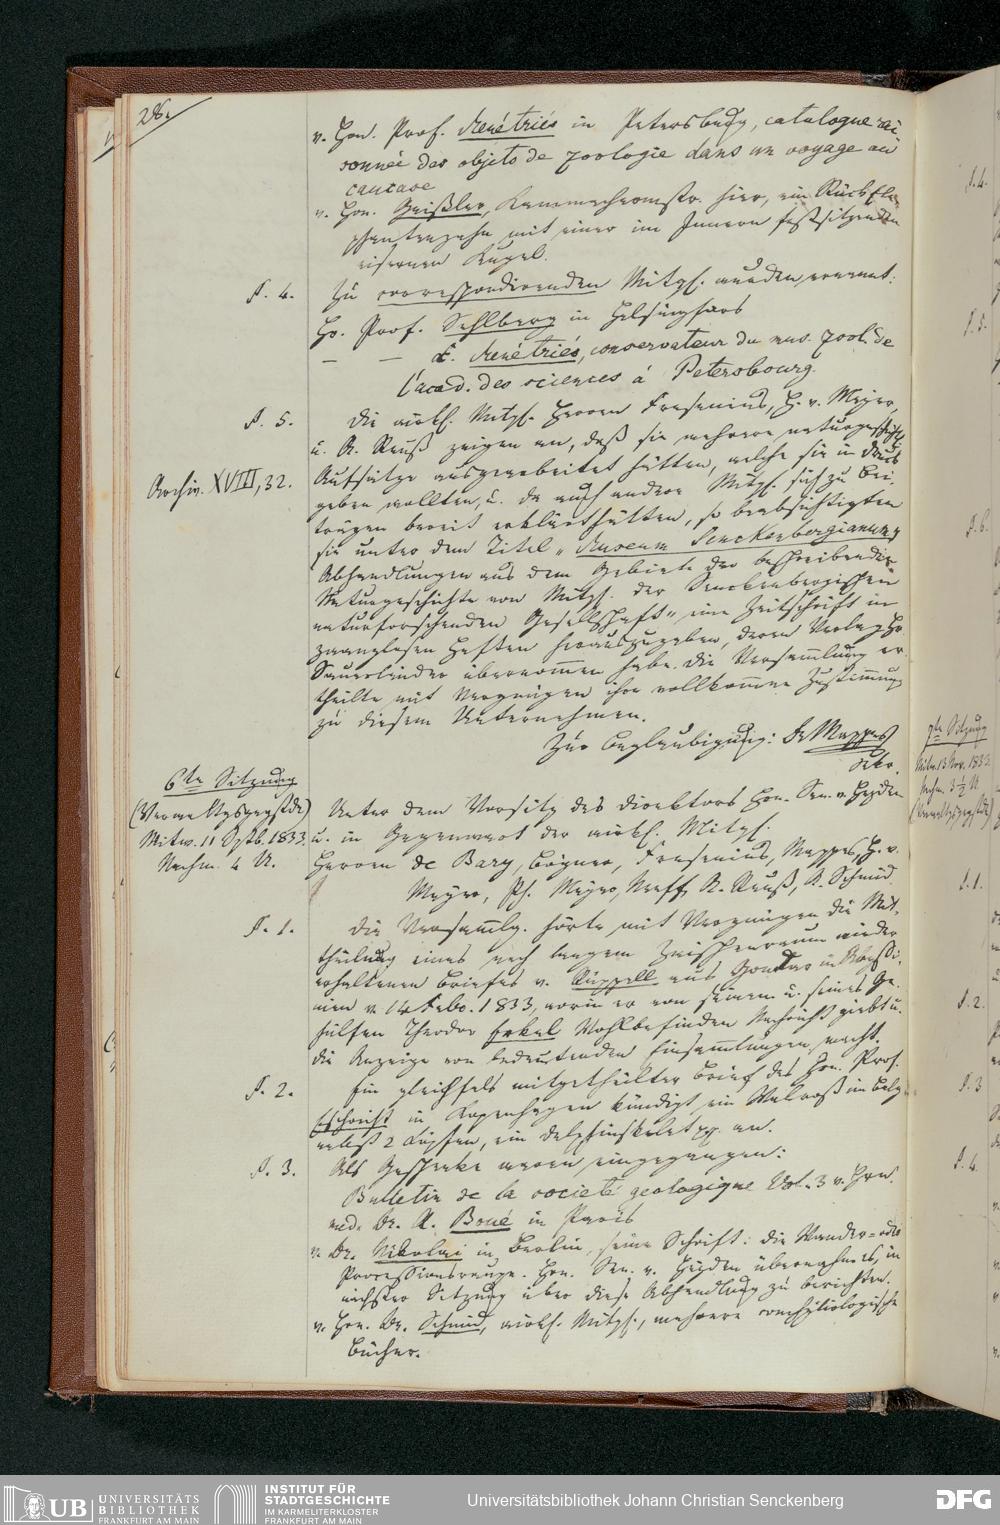 286.
v. Hrn. Prof. Menétriés in Petersburg, catalogue rai-
sonné des objets de zoologie dans un voyage au
caucase
v. Hrn. Geißler, hier, ein Stück Ele-
phantenzahn mit einer im Innern festsitzenden
eisernen Kugel.
§. 4. Zu correspondirenden Mitgl. wurden ernannt:
Hr. Prof. Sahlberg in Helsingfors
— — E. Menétriés, conservateur du mus. zool. de
l'acad. des sciences à Petersbourg.
§. 5. Die wirkl. Mitgl. Herren Fresenius, H. v. Meyer,
u. A. Reuß zeigen an, daß sie mehrere naturgeschichtl.
Aufsätze ausgearbeitet hätten, welche sie in Druck
Archiv. XVIII, 32.
geben wollten, u. da auch andere Mitgl. sich zu Bei-
trägen bereit erklärt hätten, so beabsichtigten
sie unter dem Titel „Museum Senckenbergianum,
Abhandlungen aus dem Gebiete der beschreibenden
Naturgeschichte von Mitgl. der Senckenbergischen
naturforschenden Gesellschaft" eine Zeitschrift in
zwanglosen Heften herauszugeben, deren Verlag Hr.
Sauerländer übernommen habe. Die Versammlung er-
theilte mit Vergnügen ihre vollkommene Zustimmung
zu diesem Unternehmen.
Zur Beglaubigung: Dr Mappes
Sekr.
6te Sitzung
(Verwaltgsgegstde)
Mitw. 11 Sptb. 1833.
Nachm. 4 U.
Unter dem Vorsitz des Direktors Hrn. Sen. v. Heyden
u. in Gegenwart der wirkl. Mitgl.
Herren de Bary, Bögner, Fresenius, Mappes, H. v.
Meyer, Ph. Meyer, Neeff, A. Reuß, A. Schmid.
§. 1. Die Versammlg. hörte mit Vergnügen die Mit-
theilung eines nach langem Zwischenraum wieder
erhaltenen Briefes v. Rüppell aus Gondar in Abyssi-
nien v. 14 Febr. 1833, worin er von seinem u. seines Ge-
hülfen Theodor Erkel Wohlbefinden Nachricht giebt u.
die Anzeige von bedeutenden Einsammlungen macht.
§. 2. Ein gleichfals mitgetheilter Brief des Hrn. Prof.
Eschricht in Kopenhagen kündigt ein Walroß im Balg
nebst 2 Köpfen, ein Delphinskelet pp. an.
§. 3. Als Geschenke waren eingegangen:
Bulletin de la societé geologique Vol. 3 v. Hrn.
med. Dr. A. Boué in Paris
v. Dr. Nikolai in Berlin, seine Schrift: die Wander- oder
Processionsraupe. Hr. Sen. v. Heyden übernahm es, in
nächster Sitzung über diese Abhandlung zu berichten.
v. Hrn. Dr. Schmid, wirkl. Mitgl., mehrere conchyliologische
Bücher.
§. 4.
§. 5.
§. 6.
7te Sitzung
Mitw. 13 Nov. 1833
Nachm. 3 ½ U.
(Verwaltgsgegstde)
§. 1.
§. 2.
§. 3
§. 4.
UB UNIVERSITÄTS
BIBLIOTHEK
FRANKFURT AM MAIN
INSTITUT FÜR
STADTGESCHICHTE
IM KARMELITERKLOSTER
FRANKFURT AM MAIN
Universitätsbibliothek Johann Christian Senckenberg
DFG